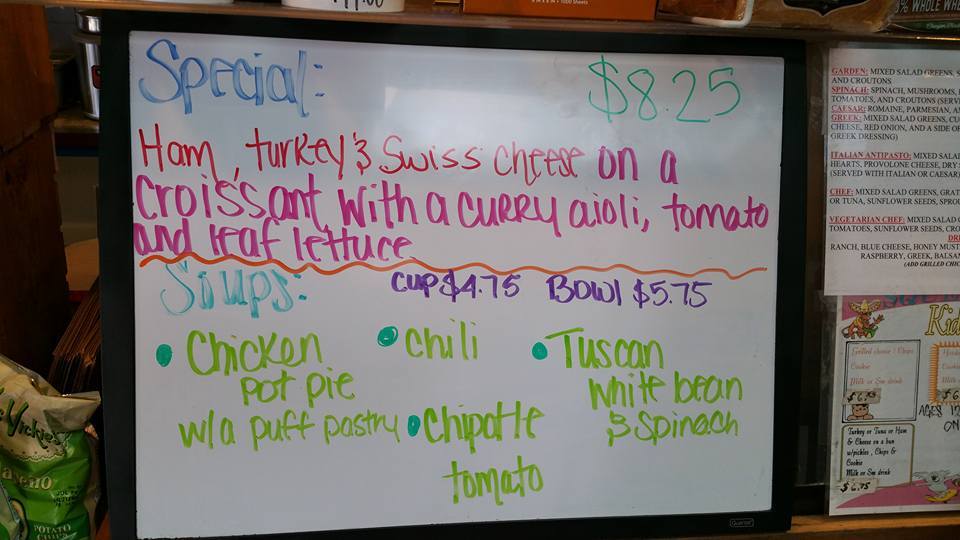 Special: $8.25
Ham, turkey & Swiss cheese on a
croissant with a curry aioli, tomato
and leaf lettuce.
Soups: cup $4.75 Bowl $5.75
• Chicken
pot pie
w/a puff pastry
• Chili
• Chipotle
tomato
• Tuscan
white bean
& spinach
WHOLE
GARDEN: MIXED SALAD GREENS,
AND CROUTONS
SPINACH: SPINACH, MUSHROOMS,
TOMATOES, AND CROUTONS
CAESAR: ROMAINE, PARMESAN,
GREEK: MIXED SALAD GREENS,
CHEESE, RED ONION, AND A SIDE OF
GREEK DRESSING)
ITALIAN ANTIPASTO: MIXED
HEARTS, PROVOLONE CHEESE, DRY
(SERVED WITH ITALIAN OR CAESAR)
CHEF: MIXED SALAD GREENS,
OR TUNA, SUNFLOWER SEEDS,
VEGETARIAN CHEF: MIXED
TOMATOES, SUNFLOWER SEEDS,
RANCH, BLUE CHEESE, HONEY
RASPBERRY, GREEK,
(ADD GRILLED
Grilled cheese / Chips
Cookie
Milk or Sm drink
Turkey or Tuna or Ham
& Cheese on a bun
w/pickles, Chips &
Cookie
Milk or Sm drink
$6.75
AGES 12
Vickie's
POTATO
CHIPS
Quartet